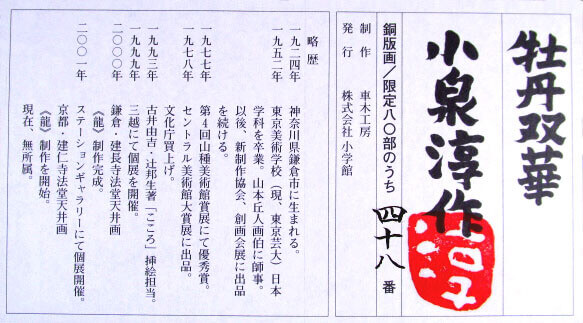 牡丹双華
小泉淳作
銅版画／限定八〇部のうち 四十八 番
制作 車木工房
発行 株式会社 小学館
略歴
一九二四年 神奈川県鎌倉市に生まれる。
一九五二年 東京美術学校（現、東京芸大）日本
学科を卒業。山本丘人画伯に師事。
以後、新制作協会、創画会展に出品
を続ける。
一九七七年 第4回山種美術館賞展にて優秀賞。
一九七八年 セントラル美術館大賞展に出品。
文化庁買上げ。
一九九三年 古井由吉・辻邦生著「こころ」挿絵担当。
一九九九年 三越にて個展を開催。
二〇〇〇年 鎌倉・建長寺法堂天井画
《龍》制作完成。
二〇〇一年 ステーションギャラリーにて個展開催。
京都・建仁寺法堂天井画
《龍》制作を開始。
現在、無所属。